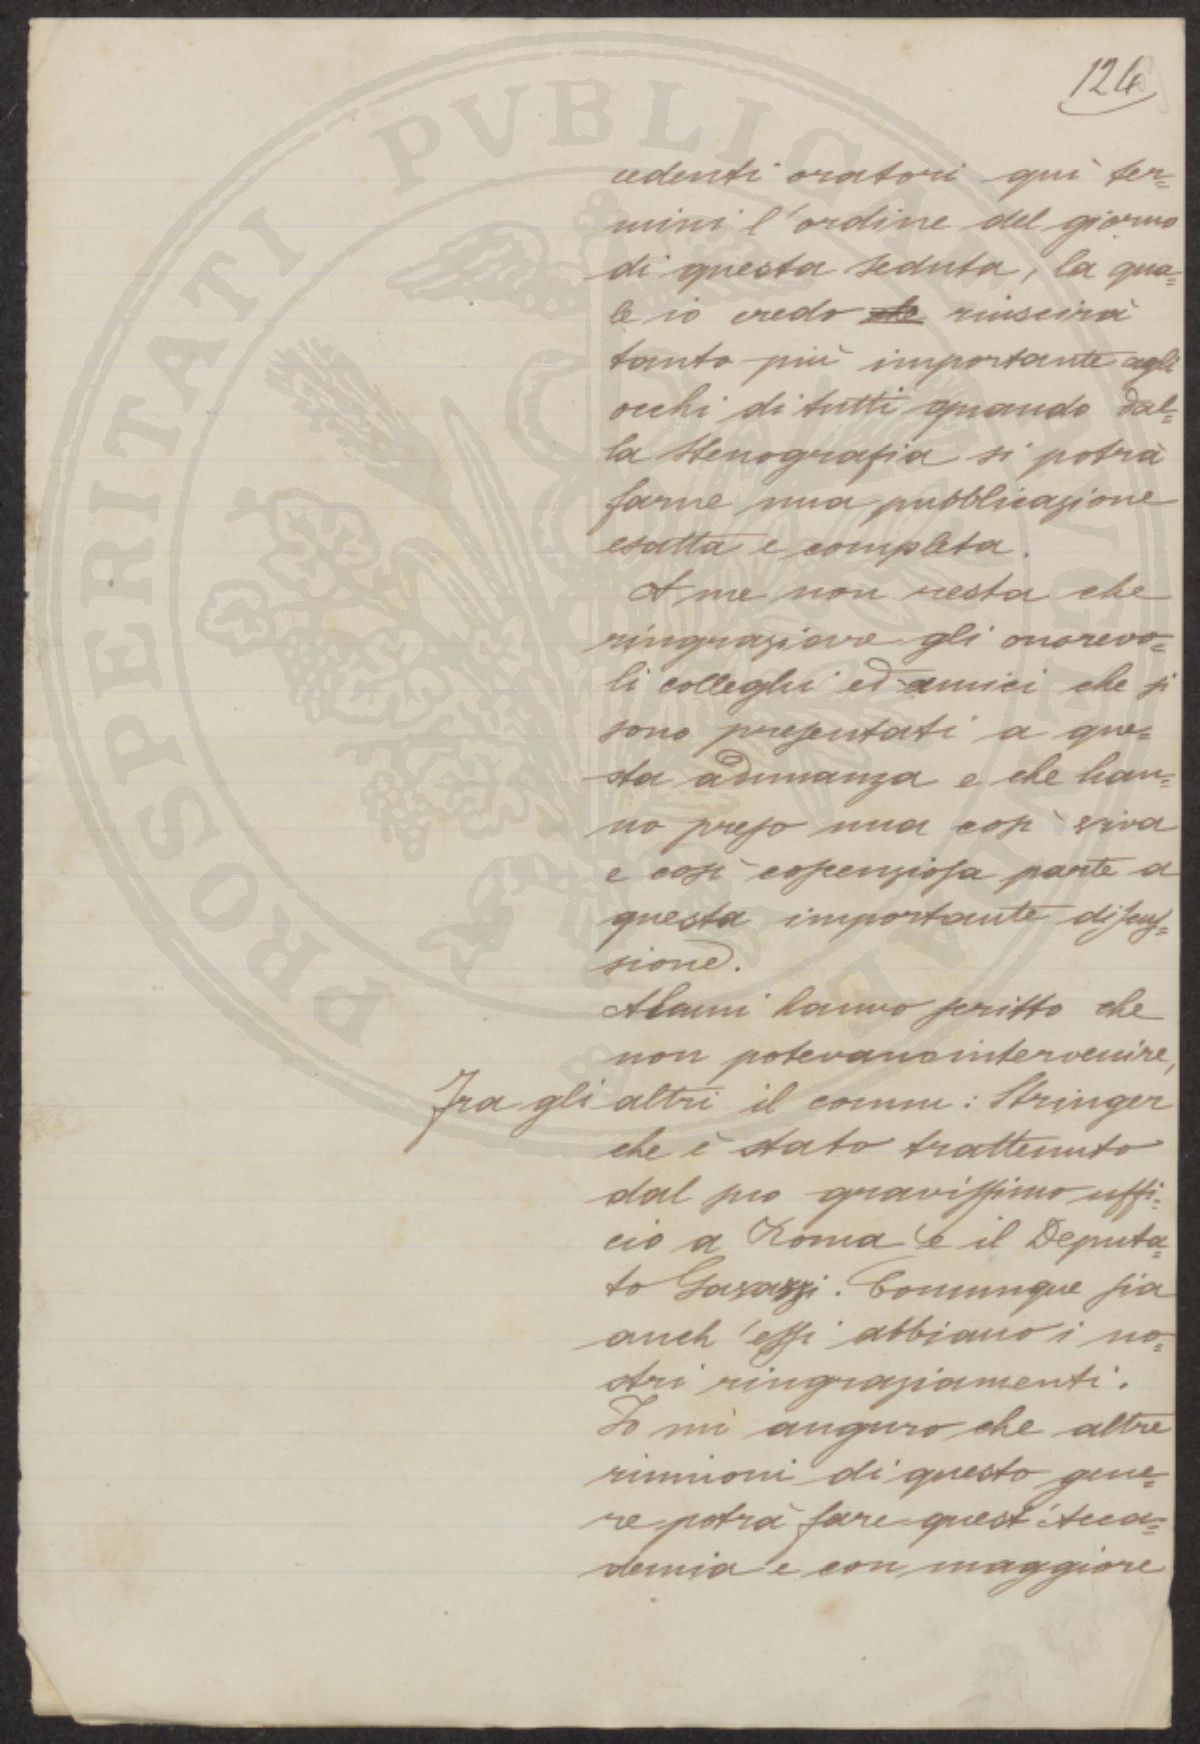 124
cedenti oratori quì ter=
mini l'ordine del giorno
di questa seduta, la qua=
le io credo che riuscirà
tanto più importante agli
occhi di tutti quando dal=
la stenografia si potrà
farne una pubblicazione
esatta e completa.
A me non resta che
ringraziare gli onorevo=
li colleghi ed amici che si
sono presentati a que=
sta adunanza e che han=
no preso una così viva
e così coscenziosa parte a
questa importante discus=
sione.
Alcuni hanno scritto che
non potevano intervenire,
Fra gli altri il comm: Stringer
che è stato trattenuto
dal suo gravissimo uffi=
cio a Roma e il Deputa=
to Gavazzi. Comunque sia
anch'essi abbiano i no=
stri ringraziamenti.
Io mi auguro che altre
riunioni di questo gene=
re potrà fare quest'Acca=
demia e con maggiore
PROSPERITATI PVBLICAE AVGENDAE